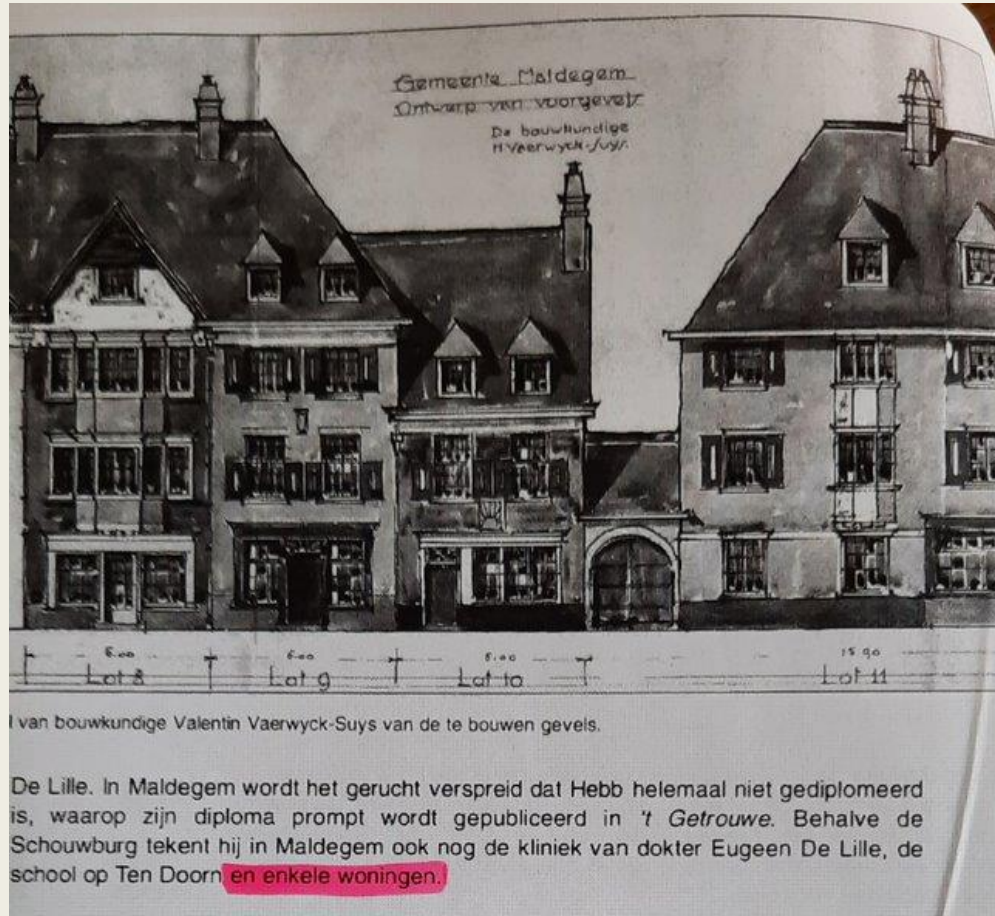 Gemeente Maldegem
Ontwerp van voorgevels
De bouwkundige
Vaerwyck-Suys.
6.00 6.00 15.90
Lot 8 Lot 9 Lot 10 Lot 11
van bouwkundige Valentin Vaerwyck-Suys van de te bouwen gevels.
De Lille. In Maldegem wordt het gerucht verspreid dat Hebb helemaal niet gediplomeerd
is, waarop zijn diploma prompt wordt gepubliceerd in 't Getrouwe. Behalve de
Schouwburg tekent hij in Maldegem ook nog de kliniek van dokter Eugeen De Lille, de
school op Ten Doorn en enkele woningen.